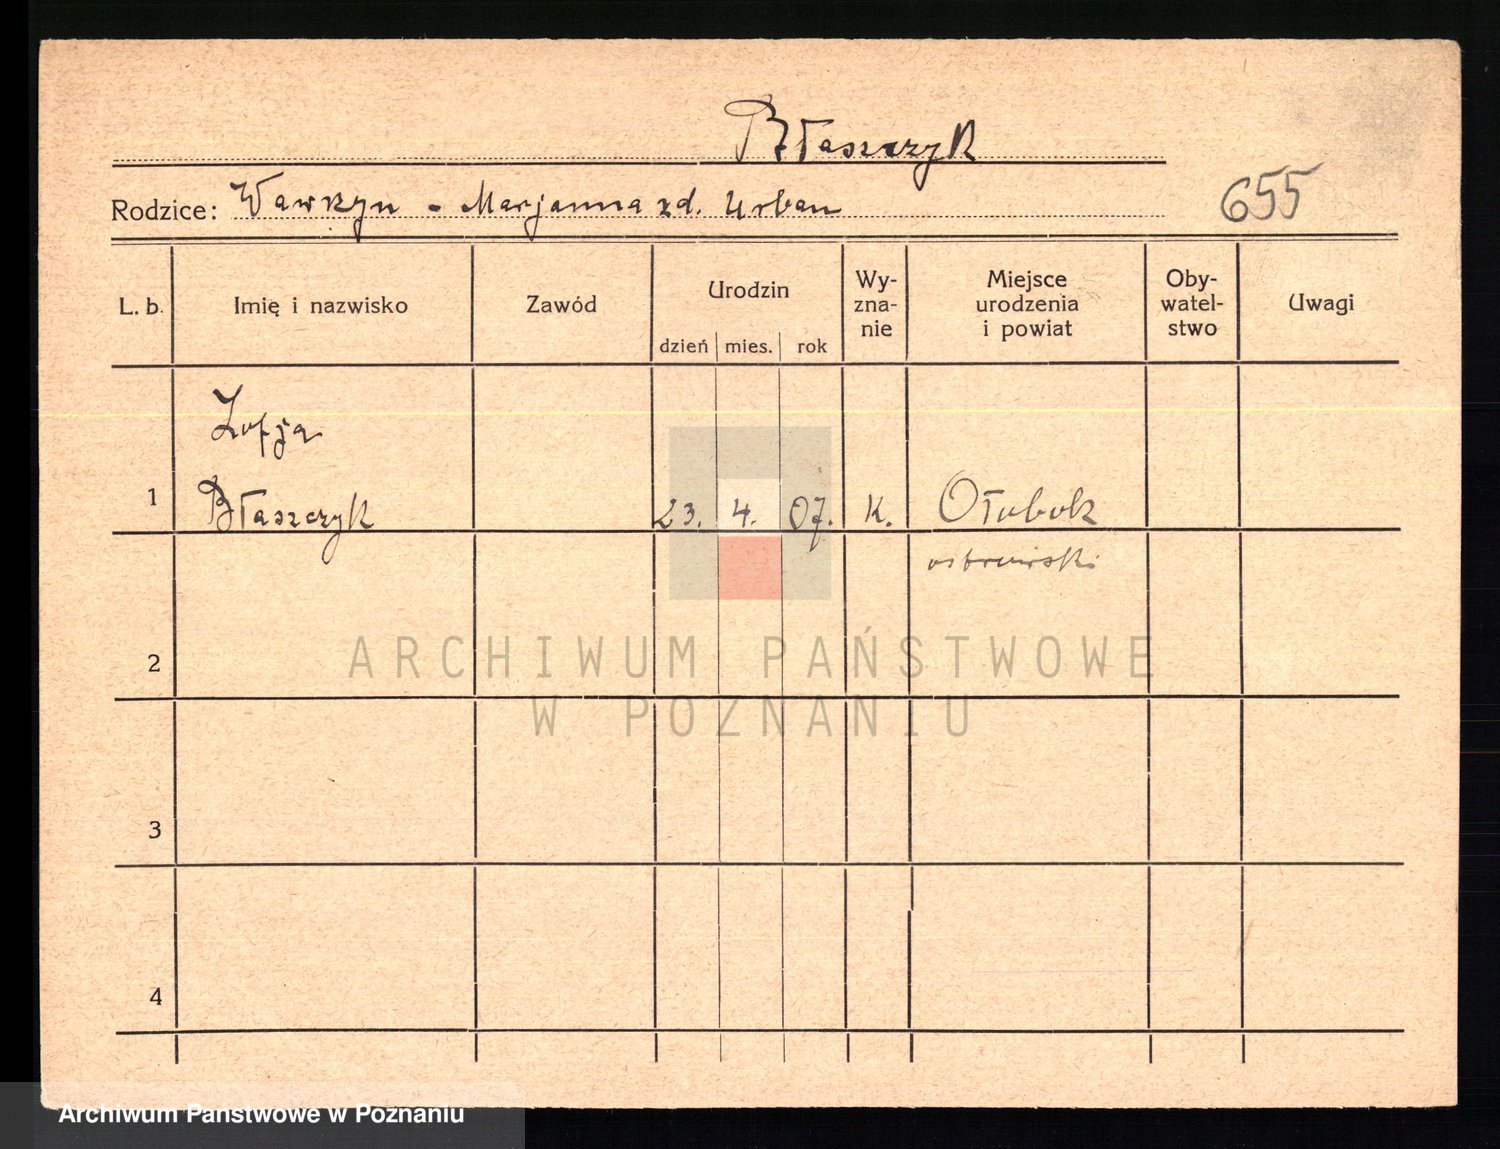 Błaszczyk
Rodzice: Wawrzyn - Marjanna zd. Urban
655
L. b.
Imię i nazwisko
Zawód
Urodzin
dzień mies. rok
Wy-
zna-
nie
Miejsce
urodzenia
i powiat
Oby-
watel-
stwo
Uwagi
Zofja
1 Błaszczyk 23. 4. 07. K. Ołobok
ostrowski
2
ARCHIWUM PAŃSTWOWE
W POZNANIU
3
4
Archiwum Państwowe w Poznaniu